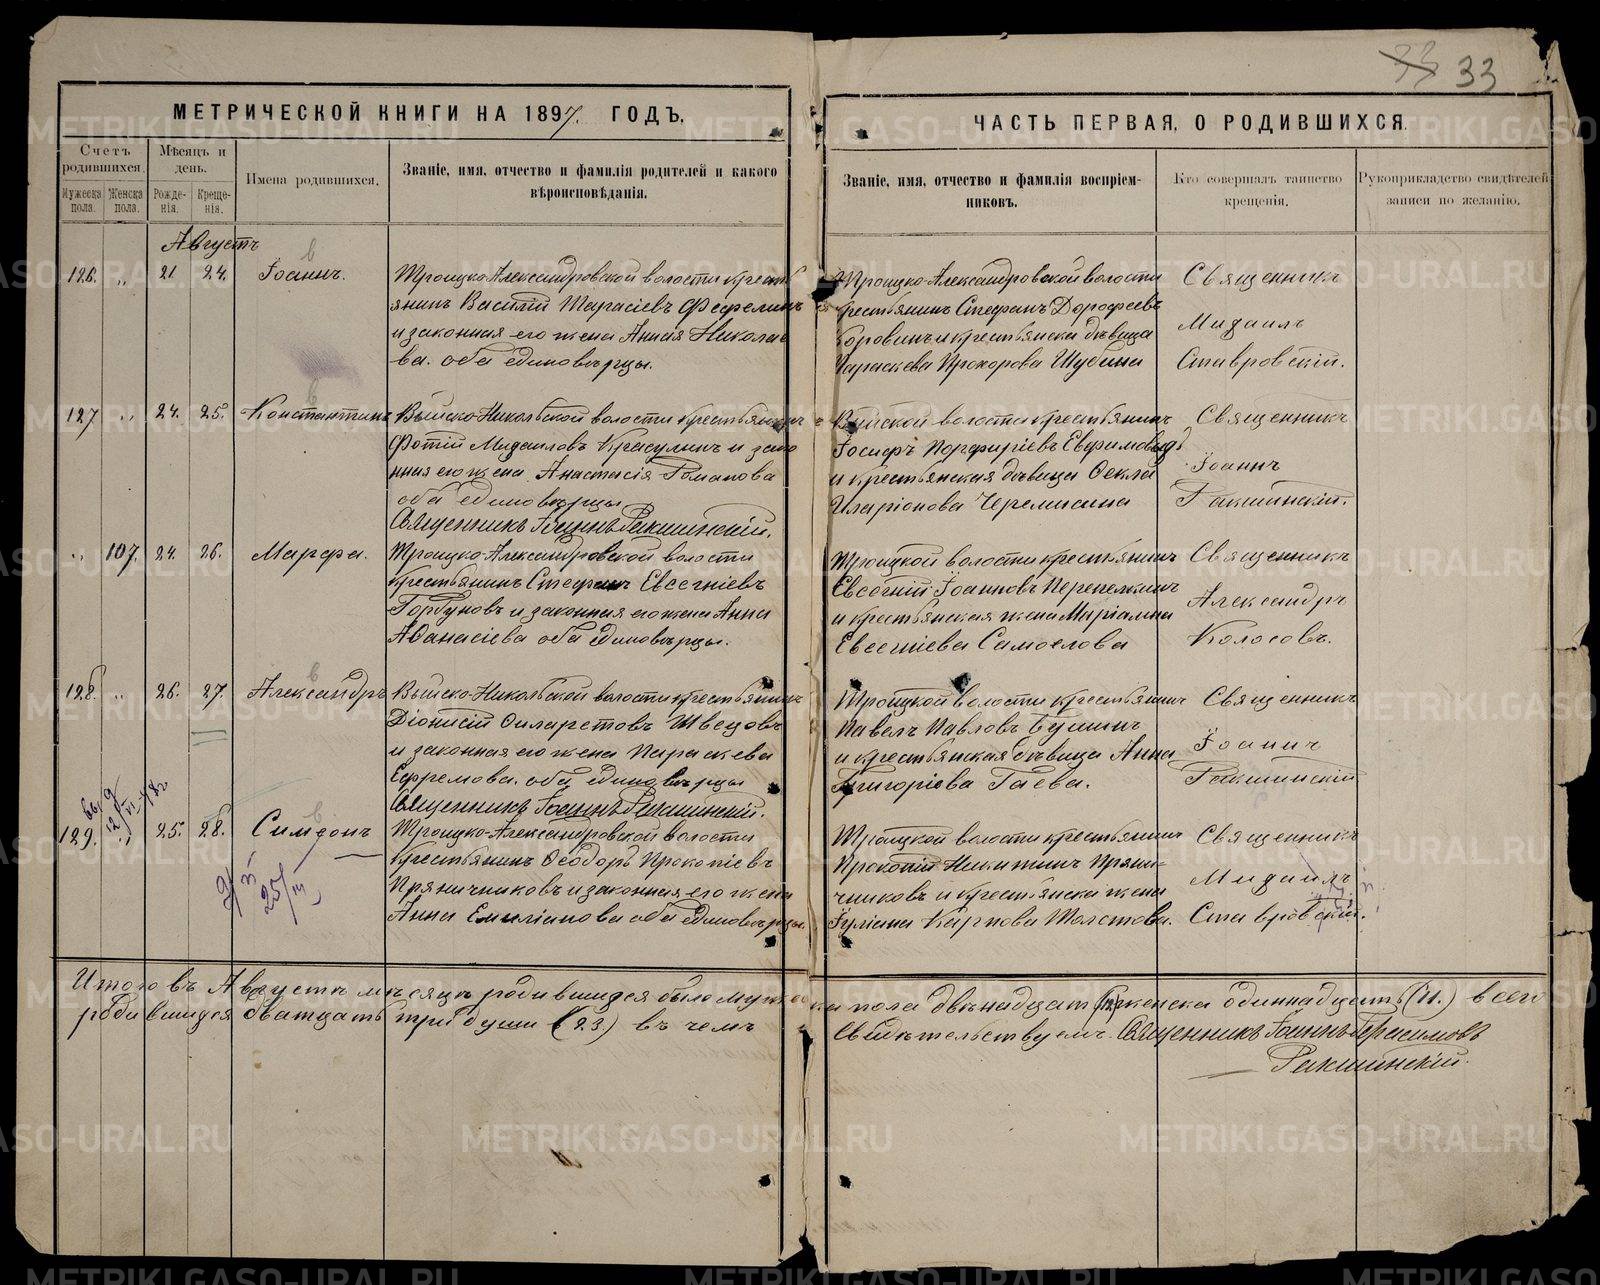 33 33
МЕТРИЧЕСКОЙ КНИГИ НА 1897. ГОДЪ,
ЧАСТЬ ПЕРВАЯ, О РОДИВШИХСЯ.
Счетъ родившихся.
Мужеска пола.
Женска пола.
Мѣсяцъ и день.
Рожденія.
Крещенія.
Имена родившихся.
Званіе, имя, отчество и фамилія родителей и какого
вѣроисповѣданія.
Званіе, имя, отчество и фамилія воспріем-
никовъ.
Кто совершалъ таинство
крещенія.
Рукоприкладство свидѣтелей
записи по желанію.
Августъ
126. „ 21 24. Іоаннъ.
Троицко-Александровской волости крест
янинъ Василій Тарасіевъ Фефелинъ
и законная его жена Анна Никола
ва. оба единовѣрцы.
Троицко-Александровской волости
крестьянинъ Стефанъ Дорофеевъ
Боровинъ и крестьянска дѣвица
Параскева Прохорова Шубина
Священникъ
Михаилъ
Ставровскій.
127 „ 24. 25. Константинъ
Выйско-Никольской волости крестьянинъ
Фотій Михаиловъ Красулинъ и зако
нная его жена Анастасія Романова
оба единовѣрцы
Священникъ Іоаннъ Ракшинскій.
Выйской волости крестьянинъ
Іосифъ Порфиріевъ Евфимовыхъ
и крестьянская дѣвица Ѳекла
Иларіонова Черемисина
Священникъ
Іоаннъ
Ракшинскій.
„ 107. 24. 26. Марфа.
Троицко-Александровской волости
крестьянинъ Стефанъ Евсегніевъ
Горбуновъ и законная его жена Анна
Аѳанасіева оба единовѣрцы.
Троицкой волости крестьянинъ
Евсегній Іоанновъ Перепелкинъ
и крестьянская жена Маріамна
Евсегніева Самоелова
Священникъ
Александръ
Колосовъ.
128. „ 26. 27. Александръ
Выйско-Никольской волости крестьянинъ
Діонисій Филаретовъ Швецовъ
и законная его жена Параскева
Ефремова. оба единовѣрцы
Священникъ Іоаннъ Ракшинскій.
Троицкой волости крестьянинъ
Павелъ Павловъ Бушинъ
и крестьянская дѣвица Анна
Григоріева Гаева.
Священникъ
Іоаннъ
Ракшинскій
129. „ 25. 28. Симеонъ
Троицко-Александровской волости
крестьянинъ Ѳеодоръ Прокопіевъ
Пряничниковъ и законная его жена
Анна Емиліанова оба единовѣрцы.
Троицкой волости крестьянинъ
Прокопій Никитинъ Пряни-
чниковъ и крестьянска жена
Іуліана Карпова Толстова.
Священникъ
Михаилъ
Ставровскій.
25/III
Итого въ Августѣ мѣсяцѣ родившихся было мужеска пола двѣнадцать (12) женска одиннадцать (11.) всего
родившихся двадцать три души (23.) въ чемъ Свидѣтельствуемъ. Священникъ Іоаннъ Герасимовъ
Ракшинскій.
METRIKI.GASO-URAL.RU